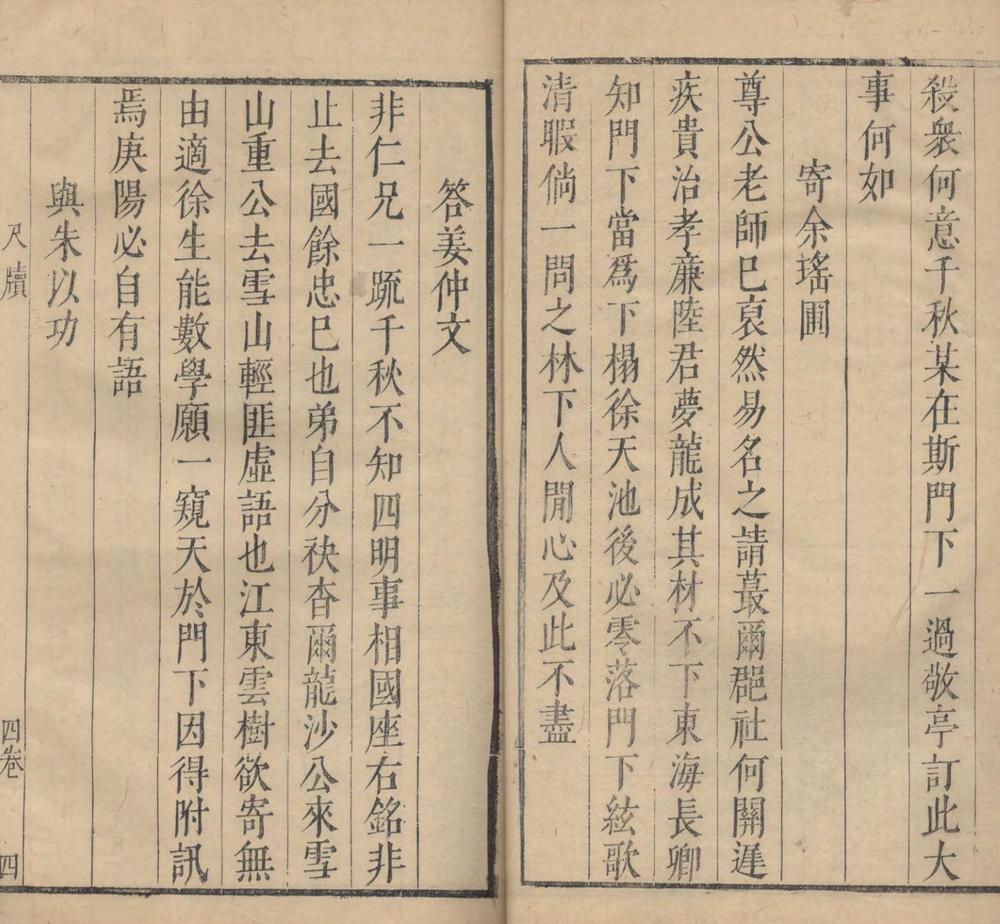 殺衆何意千秋某在斯門下一過敬亭訂此大
事何如
寄余瑤圃
尊公老師已裒然易名之請蕞爾郡社何關遲
疾貴治孝廉陸君夢龍成其材不下東海長卿
知門下當爲下榻徐天池後必零落門下絃歌
清暇倘一問之林下人閒心及此不盡
答姜仲文
非仁兄一疏千秋不知四明事相國座右銘非
止去國餘忠已也弟自分袂杳爾龍沙公來雪
山重公去雪山輕匪虛語也江東雲樹欲寄無
由適徐生能數學願一窺天於門下因得附訊
焉庚陽必自有語
與朱以功
尺牘
四卷
四